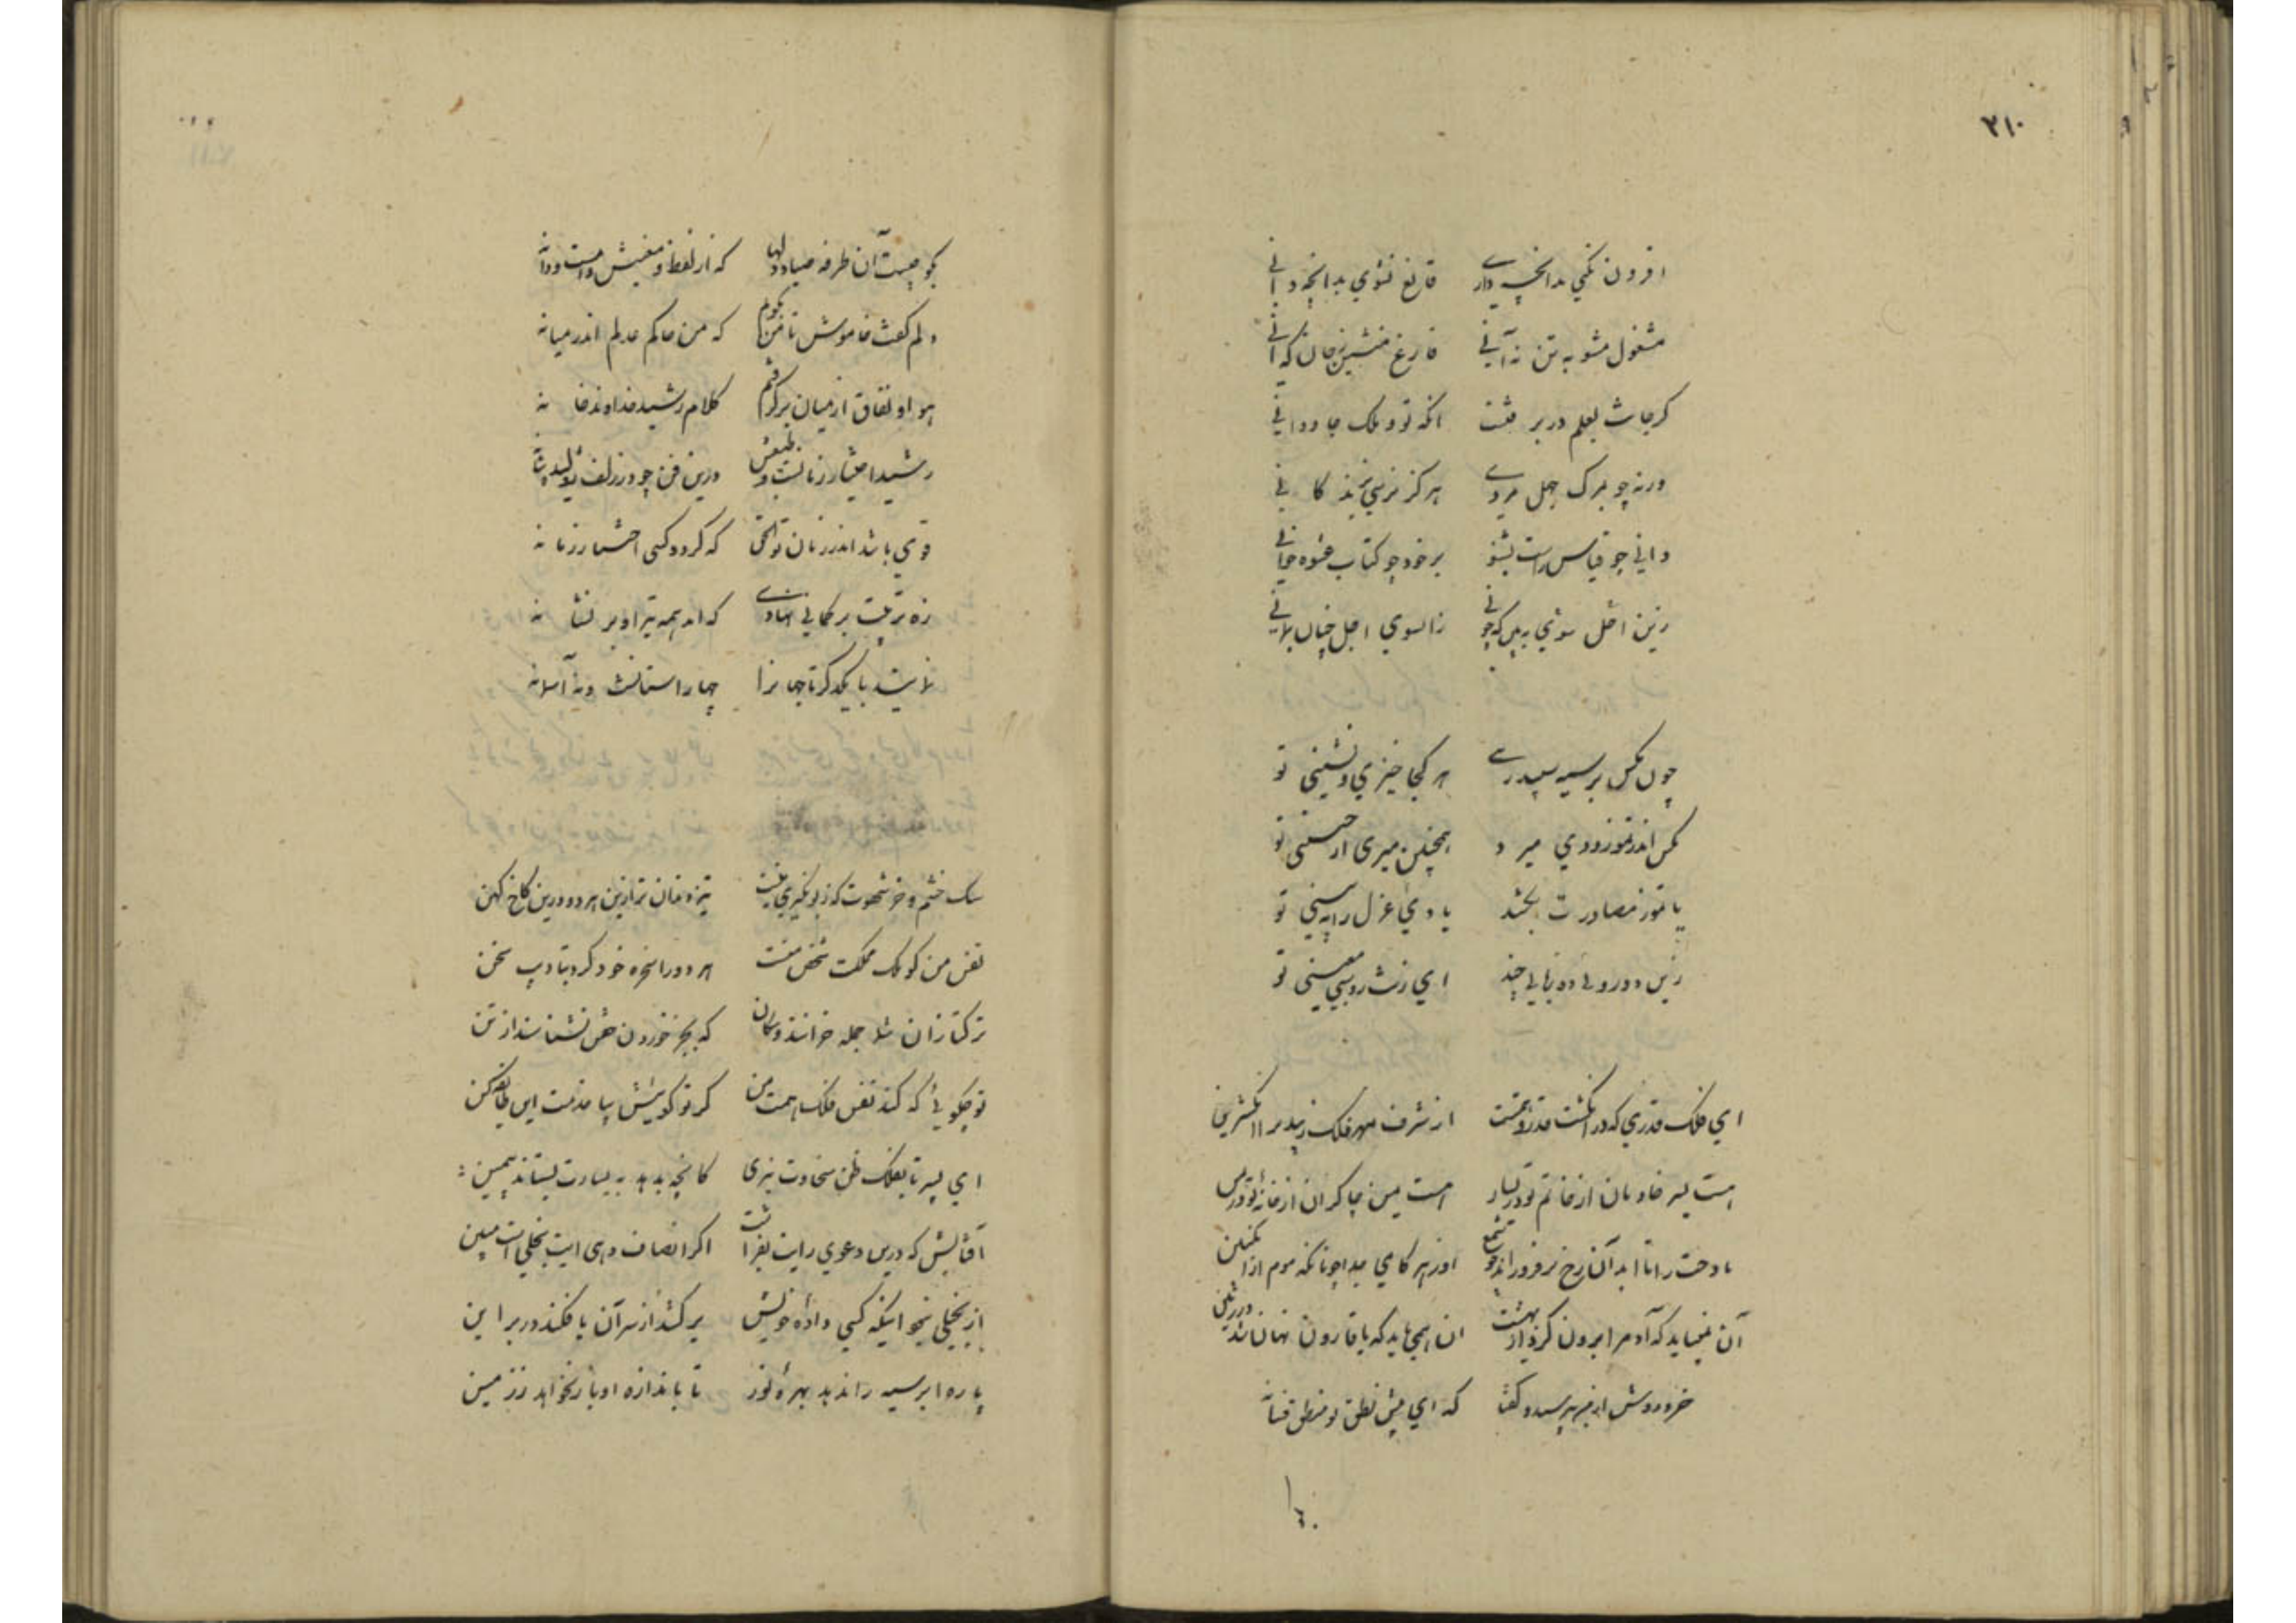 ۲۱۰
افزون نکنی بدانچه داری قانع نشوی بدانچه دانی
مشغول مشو به تن نه آنی فارغ منشین ز جان که آنی
کر جانت بعلم در بر آنکه تو و ملک جاودانی
ورنه چو بمرک جهل مردی هرکز نرسی بزندکانی
دانی چو قیاس راست بشنو بر خود چو کتاب عشوه خوانی
زین سوی اجل ببین که چونی زانسوی اجل چنان بمانی
چون مکس بر سیه سپید ری هر کجا خیزی و نشینی تو
مکس اندر تموز و دی میرد همچنین میری از خسیسی تو
یا تموز مصادرت بکشد یا دی عزل را ببینی تو
زین دورویی و ده زبانی چند ای زشت روسبی تو
ای فلک قدری که در انکشت قدر از شرف مهر فلک زیبد بر انکشترین
است یسر خادمان از خاتم تو در یسار است یمن چاکران از خانه تو در
بادخت را تا ابد آن رخ نه چو شمع اوز هر کامی جدا چونانکه موم از انکبین
آن نمیباید که آدم را برون کرد از بهشت ان همی باید که با قارون نهان شد در زمین
خرد دوش از من بپرسید و کفتا که ای پیش نطق تو منطق فسانه
بکو چیست آن طرفه صیاد دلها که از لفظ و معنیش دام است و دانه
دلم کفت خاموش تا من بکویم که من حاکم عدلم اندر میانه
هم او نفاق از میان بر کرفتم کلام رشید خداوند خانه
رشید اختیار زمانست و طبعش درین فن چو در زلف ژولیده شانه
قوی باشد اندر زمان توالحق که کردد کسی اختیار زمانه
زه تربیت بر کمانی نهادی که آمد همه تیر او بر نشانه
بمانید با یکدکر تا جهانرا چهار آستانست و نه آسمانه
سک خشم و خر شهوت که زبون کیری نیست تیزدندان‌تر ازین هر دو درین کاخ کهن
نفس من کو ملک مملکت شخص منست هر دو را سخره خود کرد بتادیب سخن
ترکتازان شما جمله خرانند و سکان که بجز خوردن خس نشناسند از تن
تو چکویی که کند نفس فلک همت من کر تو کوییش بیا خدمت این طایفه کن
ای پسر تا بفلک ظن سخاوت نبری کانچه بدهد به یسارت بستاند بیمین
آفتابش که درین دعوی رایت بفراشت اکر انصاف دهی آیت بخلیست مبین
از بخیلی نبود اینکه کسی داده خویش برکشد از سر آن یا فکند در بر این
پاره ابر سیه را ندهد بهره نور تا باندازه او باز نخواهد ز زمین